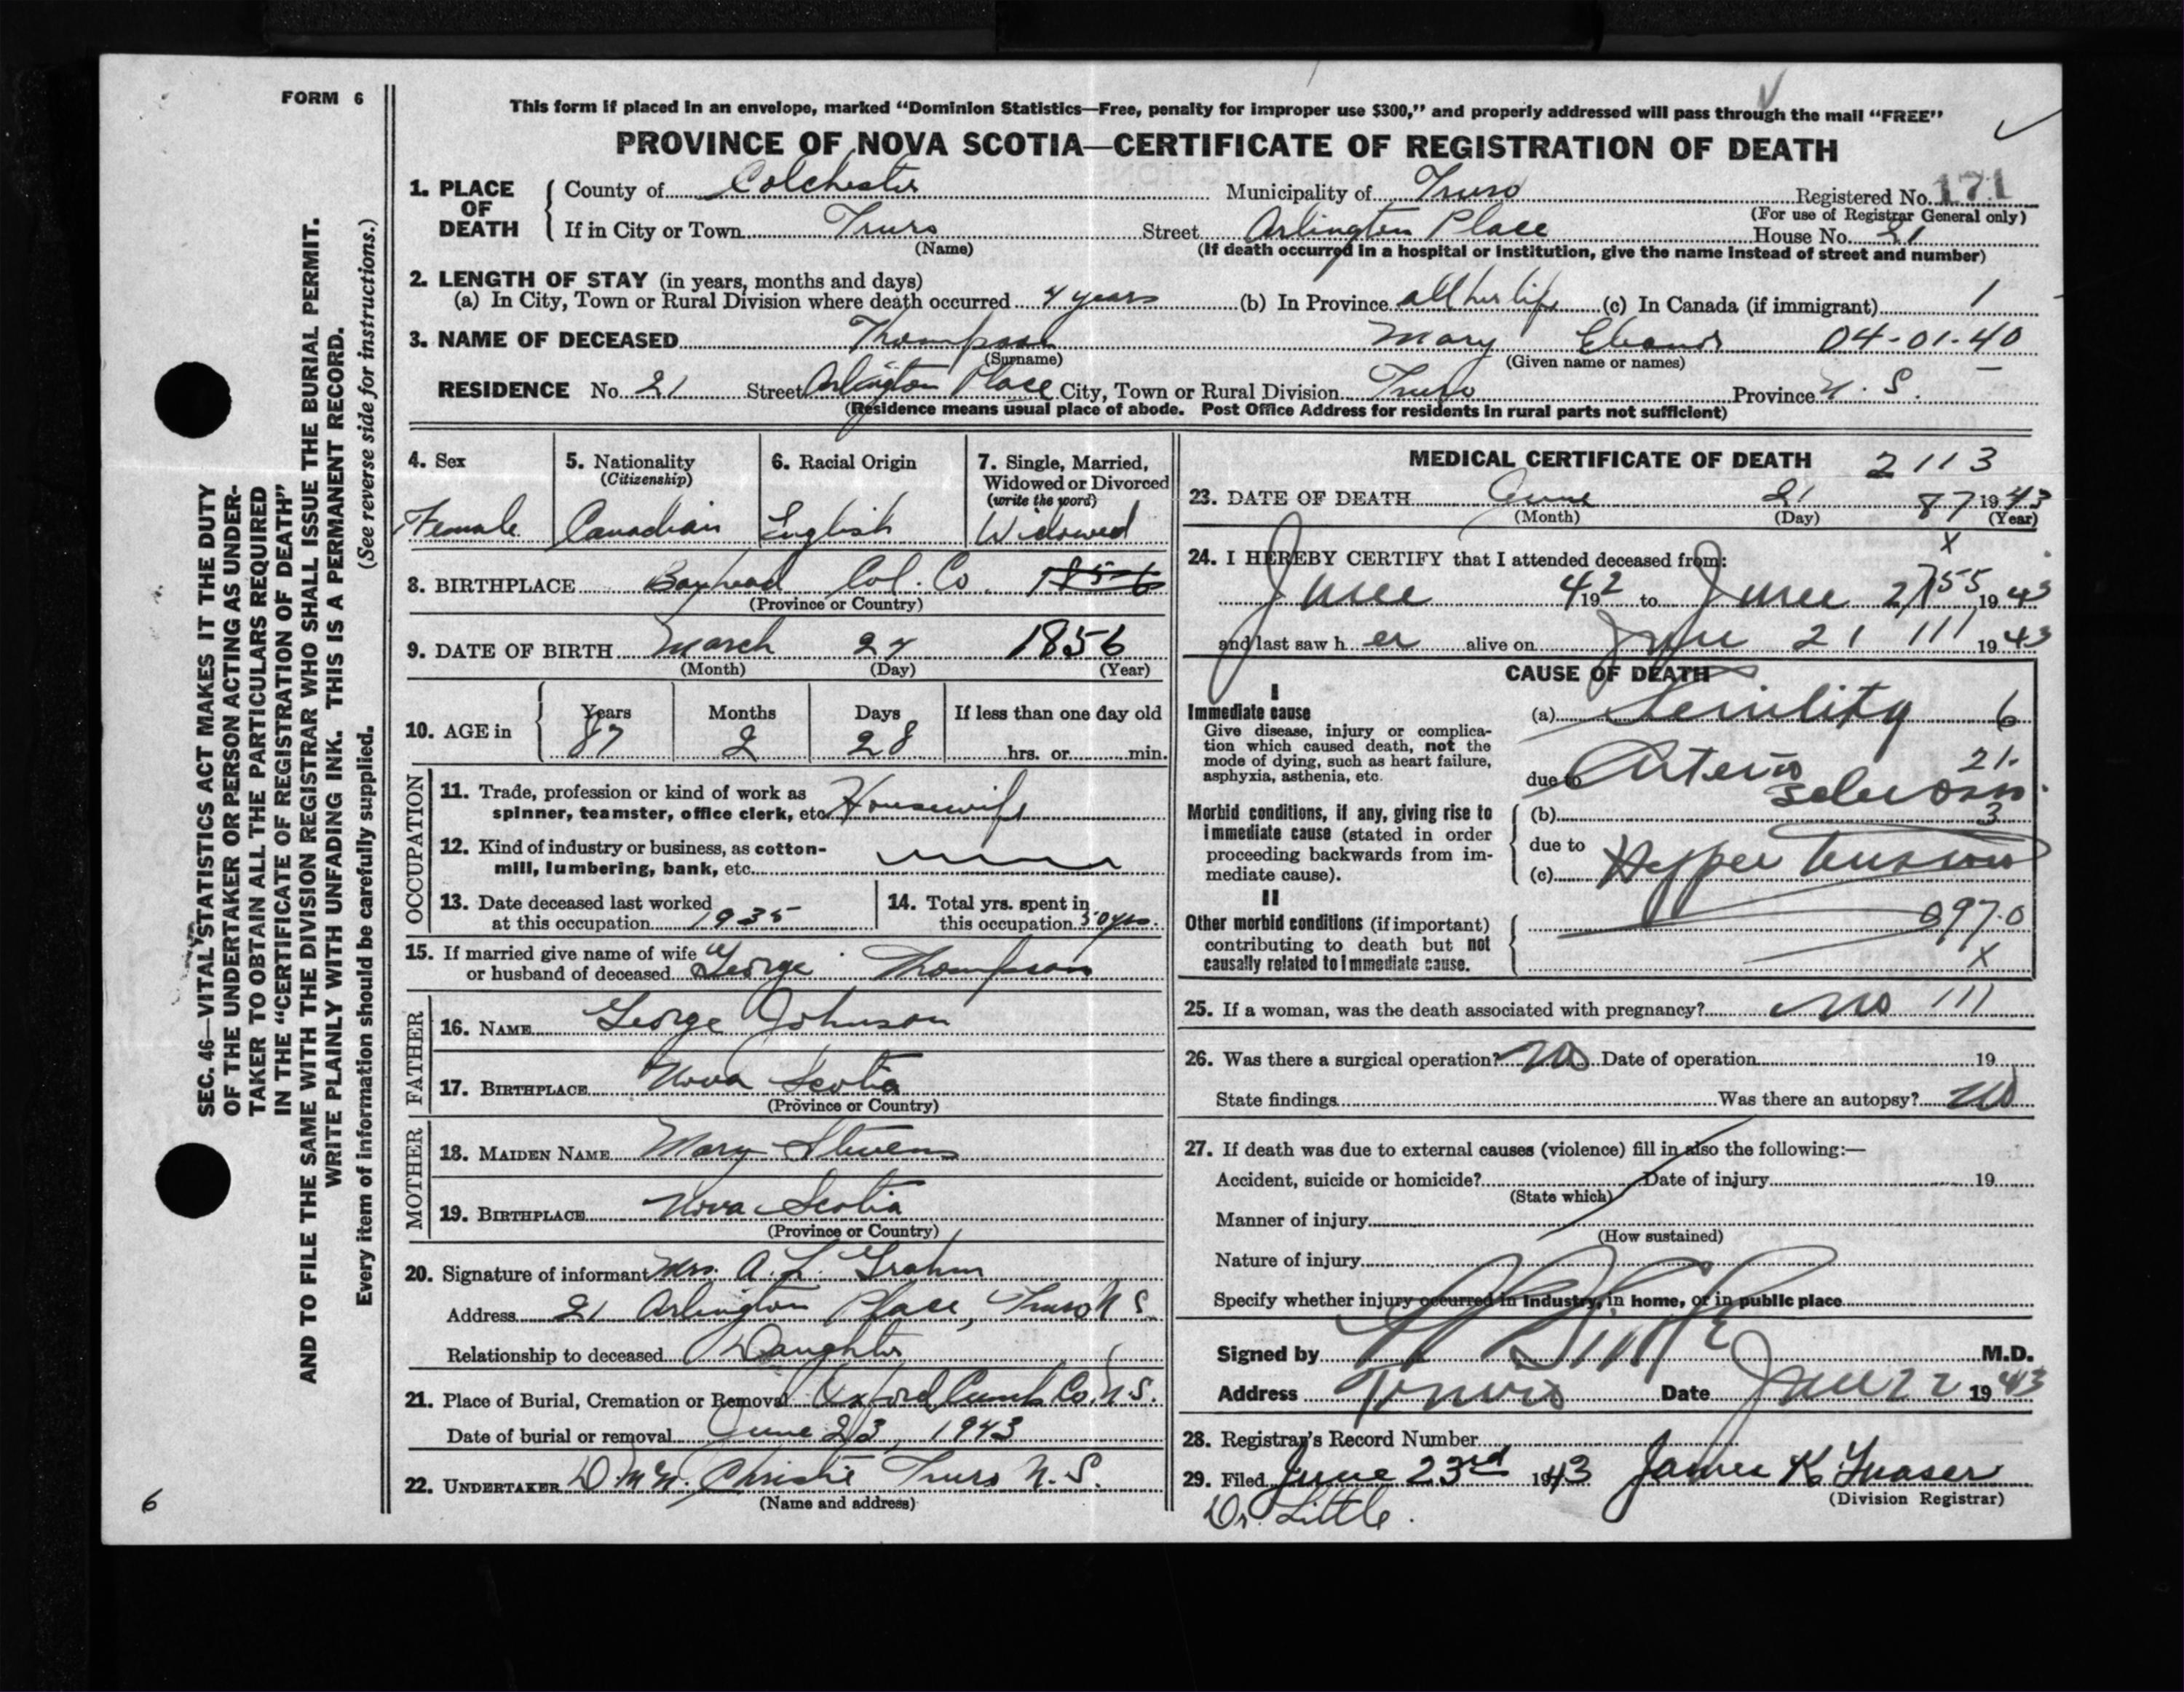 FORM 6
This form if placed in an envelope, marked "Dominion Statistics—Free, penalty for improper use $300," and properly addressed will pass through the mail "FREE"
PROVINCE OF NOVA SCOTIA—CERTIFICATE OF REGISTRATION OF DEATH
1. PLACE OF DEATH { County of Colchester Municipality of Truro Registered No. 171
(For use of Registrar General only)
If in City or Town Truro Street Arlington Place House No. 21
(Name) (If death occurred in a hospital or institution, give the name instead of street and number)
2. LENGTH OF STAY (in years, months and days)
(a) In City, Town or Rural Division where death occurred 4 years (b) In Province all her life (c) In Canada (if immigrant) 1
3. NAME OF DECEASED Thompson Mary Eleanor 04-01-40
(Surname) (Given name or names)
RESIDENCE No. 21 Street Arlington Place City, Town or Rural Division Truro Province N. S.
(Residence means usual place of abode. Post Office Address for residents in rural parts not sufficient)
4. Sex
Female
5. Nationality
(Citizenship)
Canadian
6. Racial Origin
English
7. Single, Married,
Widowed or Divorced
(write the word)
Widowed
8. BIRTHPLACE Bayhead Col. Co. 1856
(Province or Country)
9. DATE OF BIRTH March 24 1856
(Month) (Day) (Year)
10. AGE in { Years Months Days If less than one day old
87 2 28 hrs. or min.
OCCUPATION
11. Trade, profession or kind of work as
spinner, teamster, office clerk, etc. Housewife
12. Kind of industry or business, as cotton-
mill, lumbering, bank, etc.
13. Date deceased last worked
at this occupation 1935
14. Total yrs. spent in
this occupation 50 yrs.
15. If married give name of wife
or husband of deceased George Thompson
FATHER
16. NAME George Johnson
17. BIRTHPLACE Nova Scotia
(Province or Country)
MOTHER
18. MAIDEN NAME Mary Stevens
19. BIRTHPLACE Nova Scotia
(Province or Country)
20. Signature of informant Mrs. A. L. Graham
Address 21 Arlington Place, Truro N S.
Relationship to deceased Daughter
21. Place of Burial, Cremation or Removal Oxford Cumb Co. N S.
Date of burial or removal June 23, 1943
22. UNDERTAKER Christie Truro N. S.
(Name and address)
MEDICAL CERTIFICATE OF DEATH 2113
23. DATE OF DEATH June 21 87 1943
(Month) (Day) (Year)
X
24. I HEREBY CERTIFY that I attended deceased from:
June 4 1942 to June 21 55 1943
and last saw her alive on June 21 111 1943
CAUSE OF DEATH
I
Immediate cause
Give disease, injury or complica-
tion which caused death, not the
mode of dying, such as heart failure,
asphyxia, asthenia, etc.
(a) Senility 6
due to Arterio 21.
sclerosis.
Morbid conditions, if any, giving rise to
immediate cause (stated in order
proceeding backwards from im-
mediate cause).
(b) 3
due to
(c) Hyper tension
II
Other morbid conditions (if important)
contributing to death but not
causally related to immediate cause.
097.0
X
25. If a woman, was the death associated with pregnancy? no 111
26. Was there a surgical operation? No Date of operation 19
State findings Was there an autopsy? No
27. If death was due to external causes (violence) fill in also the following:—
Accident, suicide or homicide? Date of injury 19
(State which)
Manner of injury
(How sustained)
Nature of injury
Specify whether injury occurred in industry, in home, or in public place
Signed by M.D.
Address Truro Date June 22 1943
28. Registrar's Record Number
29. Filed June 23rd 1943 James K. Fraser
(Division Registrar)
Dr. Little.
SEC. 46—VITAL STATISTICS ACT MAKES IT THE DUTY
OF THE UNDERTAKER OR PERSON ACTING AS UNDER-
TAKER TO OBTAIN ALL THE PARTICULARS REQUIRED
IN THE "CERTIFICATE OF REGISTRATION OF DEATH"
AND TO FILE THE SAME WITH THE DIVISION REGISTRAR WHO SHALL ISSUE THE BURIAL PERMIT.
WRITE PLAINLY WITH UNFADING INK. THIS IS A PERMANENT RECORD.
Every item of information should be carefully supplied. (See reverse side for instructions.)
6